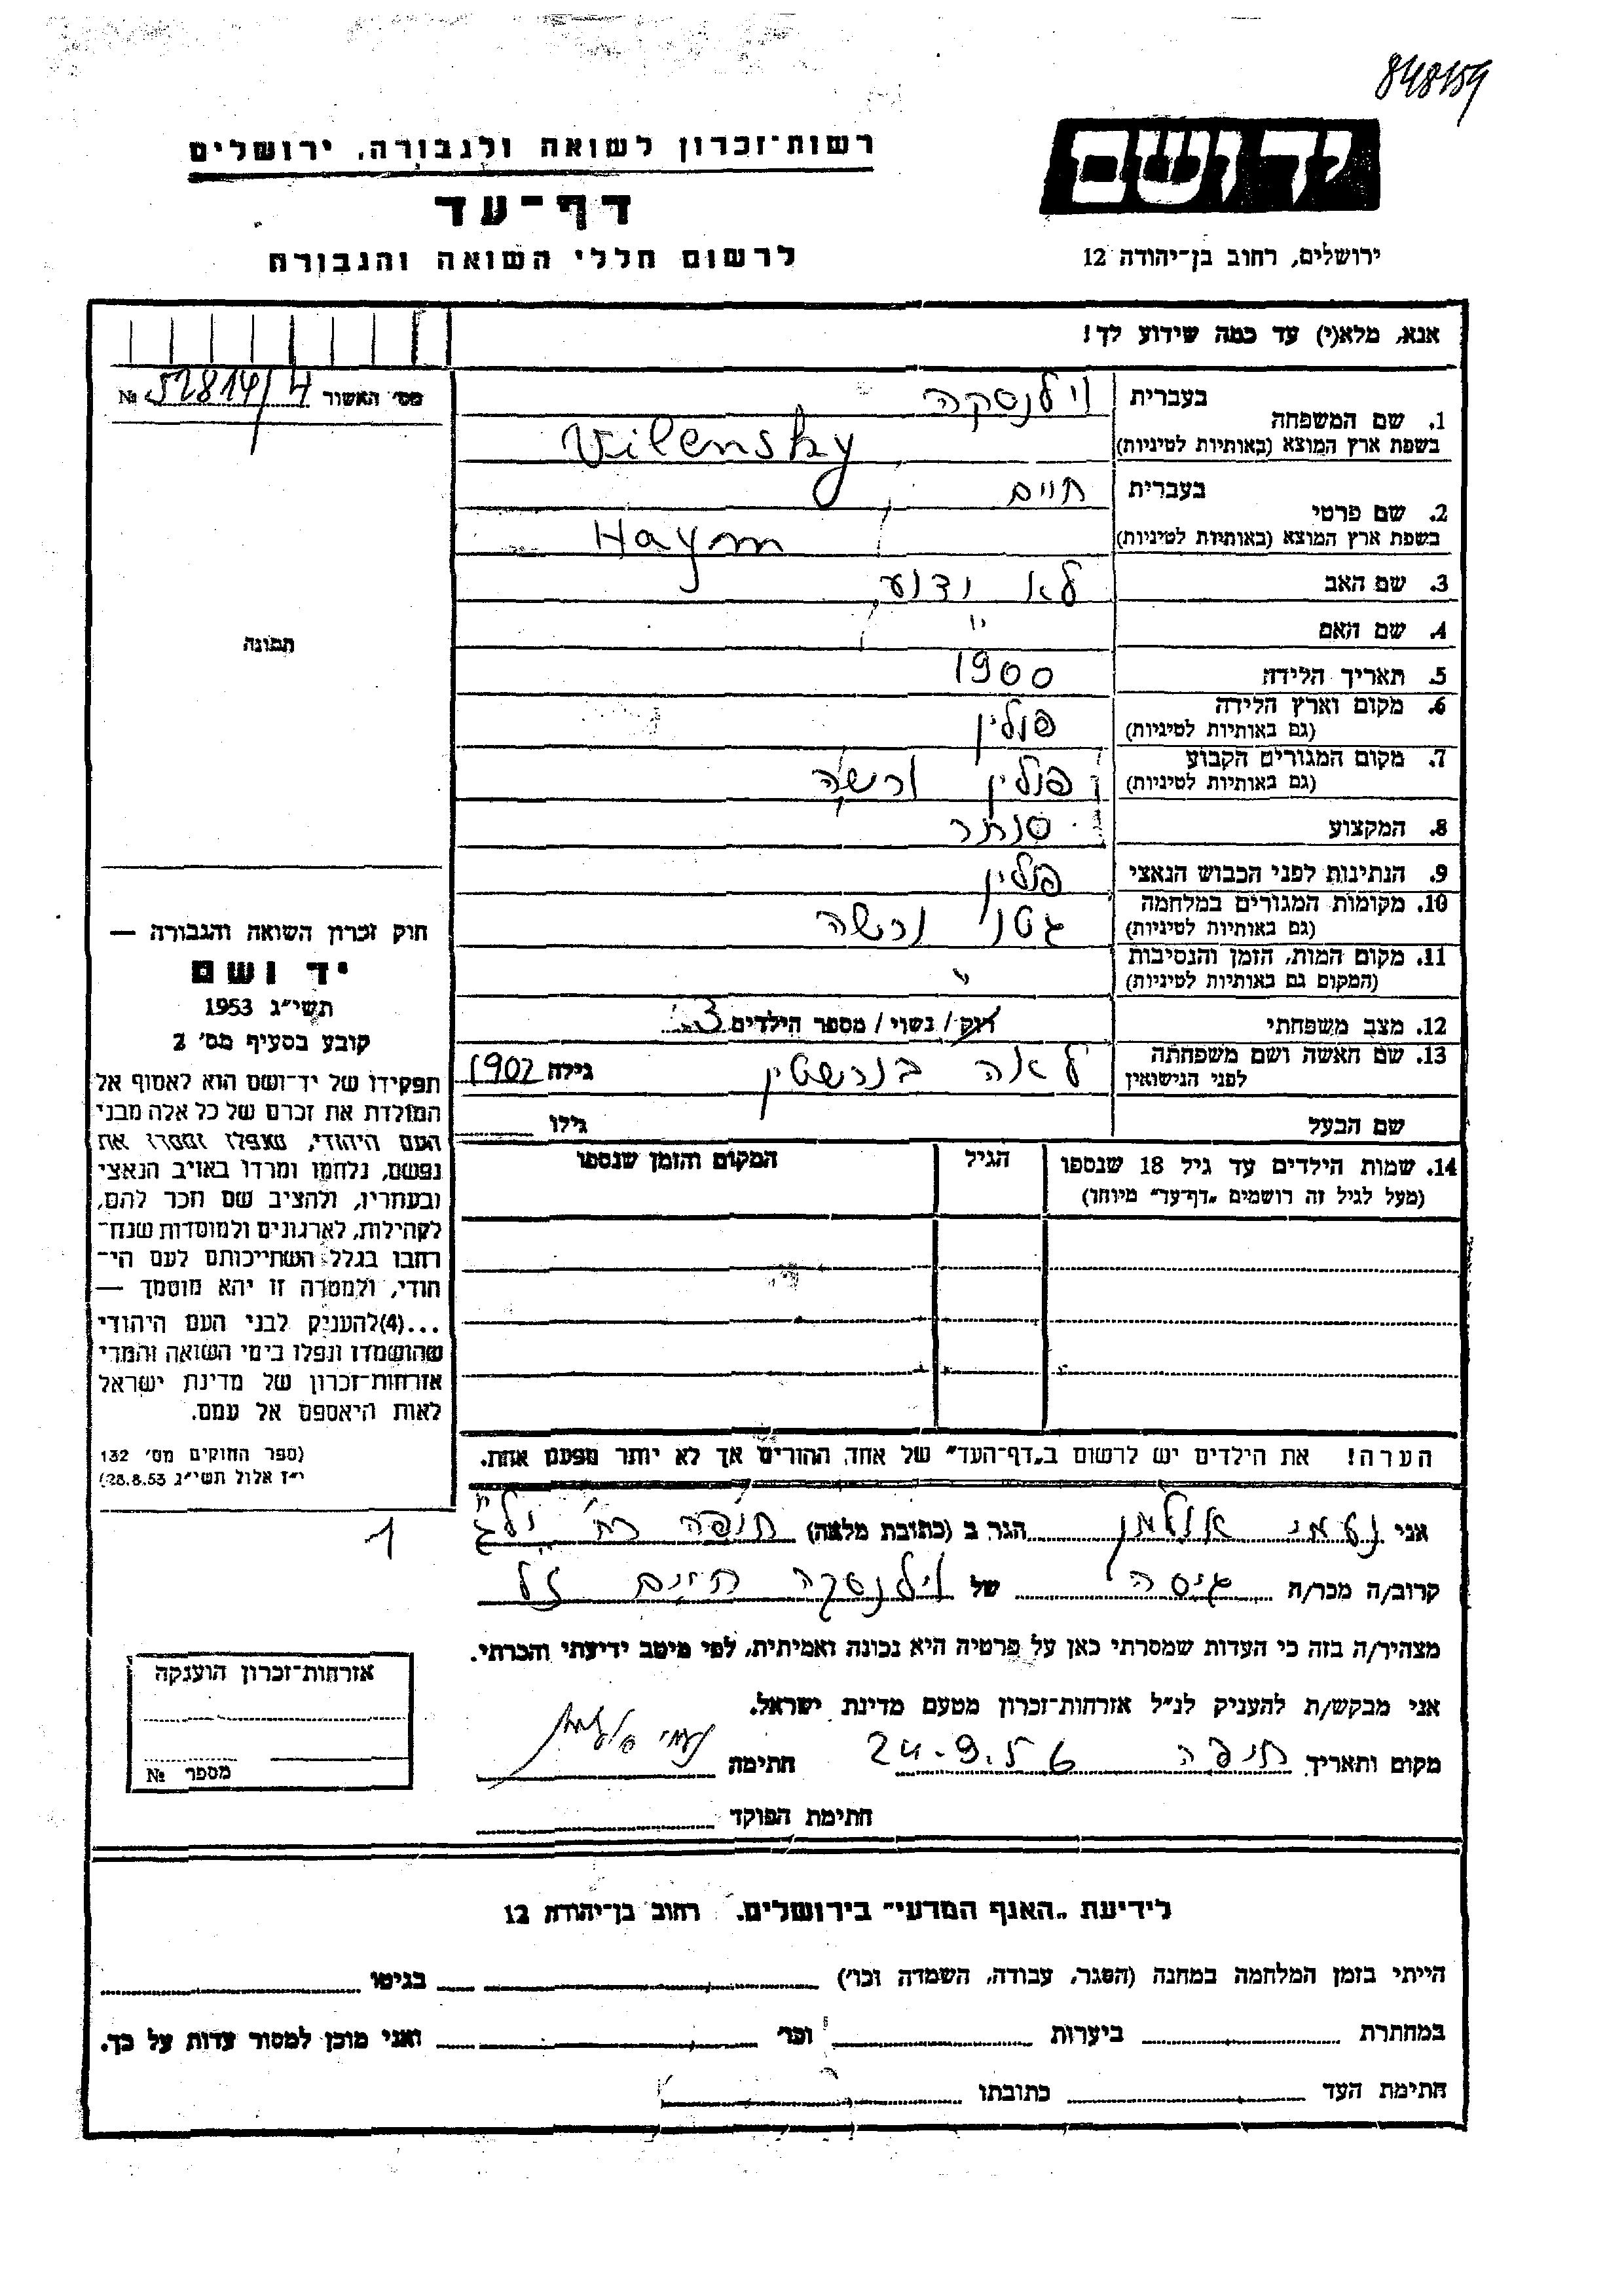 848159
רשות־זכרון לשואה ולגבורה, ירושלים
דף־עד
לרשום חללי השואה והגבורה
יד ושם
ירושלים, רחוב בן־יהודה 12
אנא, מלא(י) עד כמה שידוע לך!
מס' האשור 52814/4 №
תמונה
1. שם המשפחה בעברית וילנסקה
בשפת ארץ המוצא (באותיות לטיניות) Vilensky
2. שם פרטי בעברית חיים
בשפת ארץ המוצא (באותיות לטיניות) Haym
3. שם האב לא ידוע
4. שם האם "
5. תאריך הלידה 1900
6. מקום וארץ הלידה פולין
(גם באותיות לטיניות)
7. מקום המגורים הקבוע פולין ורשה
(גם באותיות לטיניות)
8. המקצוע סוחר
9. הנתינות לפני הכבוש הנאצי פולין
10. מקומות המגורים במלחמה גטו ורשה
(גם באותיות לטיניות)
11. מקום המות, הזמן והנסיבות "
(המקום גם באותיות לטיניות)
12. מצב משפחתי רוק / נשוי / מספר הילדים 3
13. שם האשה ושם משפחתה לאה בורשטין גילה 1902
לפני הנישואין
שם הבעל גילו
14. שמות הילדים עד גיל 18 שנספו הגיל המקום והזמן שנספו
(מעל לגיל זה רושמים „דף־עד" מיוחד)
הערה! את הילדים יש לרשום ב„דף־העד" של אחד ההורים אך לא יותר מפעם אחת.
חוק זכרון השואה והגבורה —
יד ושם
תשי"ג 1953
קובע בסעיף מס' 2
תפקידו של יד־ושם הוא לאסוף אל
המולדת את זכרם של כל אלה מבני
העם היהודי, שנפלו ומסרו את
נפשם, נלחמו ומרדו באויב הנאצי
ובעוזריו, ולהציב שם וזכר להם,
לקהילות, לארגונים ולמוסדות שנח־
רבו בגלל השתייכותם לעם הי־
הודי, ולמטרה זו יהא מוסמך —
...(4)להעניק לבני העם היהודי
שהושמדו ונפלו בימי השואה והמרי
אזרחות־זכרון של מדינת ישראל
לאות היאספם אל עמם.
(ספר החוקים מס' 132
י"ז אלול תשי"ג 28.8.53)
1
אני נעמי הגר ב (כתובת מלאה) חיפה רח'
קרוב/ה מכר/ה גיסה של וילנסקה חיים זל
מצהיר/ה בזה כי העדות שמסרתי כאן על פרטיה היא נכונה ואמיתית, לפי מיטב ידיעתי והכרתי.
אני מבקש/ת להעניק לנ"ל אזרחות־זכרון מטעם מדינת ישראל.
מקום ותאריך חיפה 24.9.56 חתימה נעמי
חתימת הפוקד
אזרחות־זכרון הוענקה
מספר №
לידיעת „האגף המדעי" בירושלים. רחוב בן־יהודה 12
הייתי בזמן המלחמה במחנה (הסגר, עבודה, השמדה וכו') בגיטו
במחתרת ביערות וכו' ואני מוכן למסור עדות על כך.
חתימת העד כתובתו